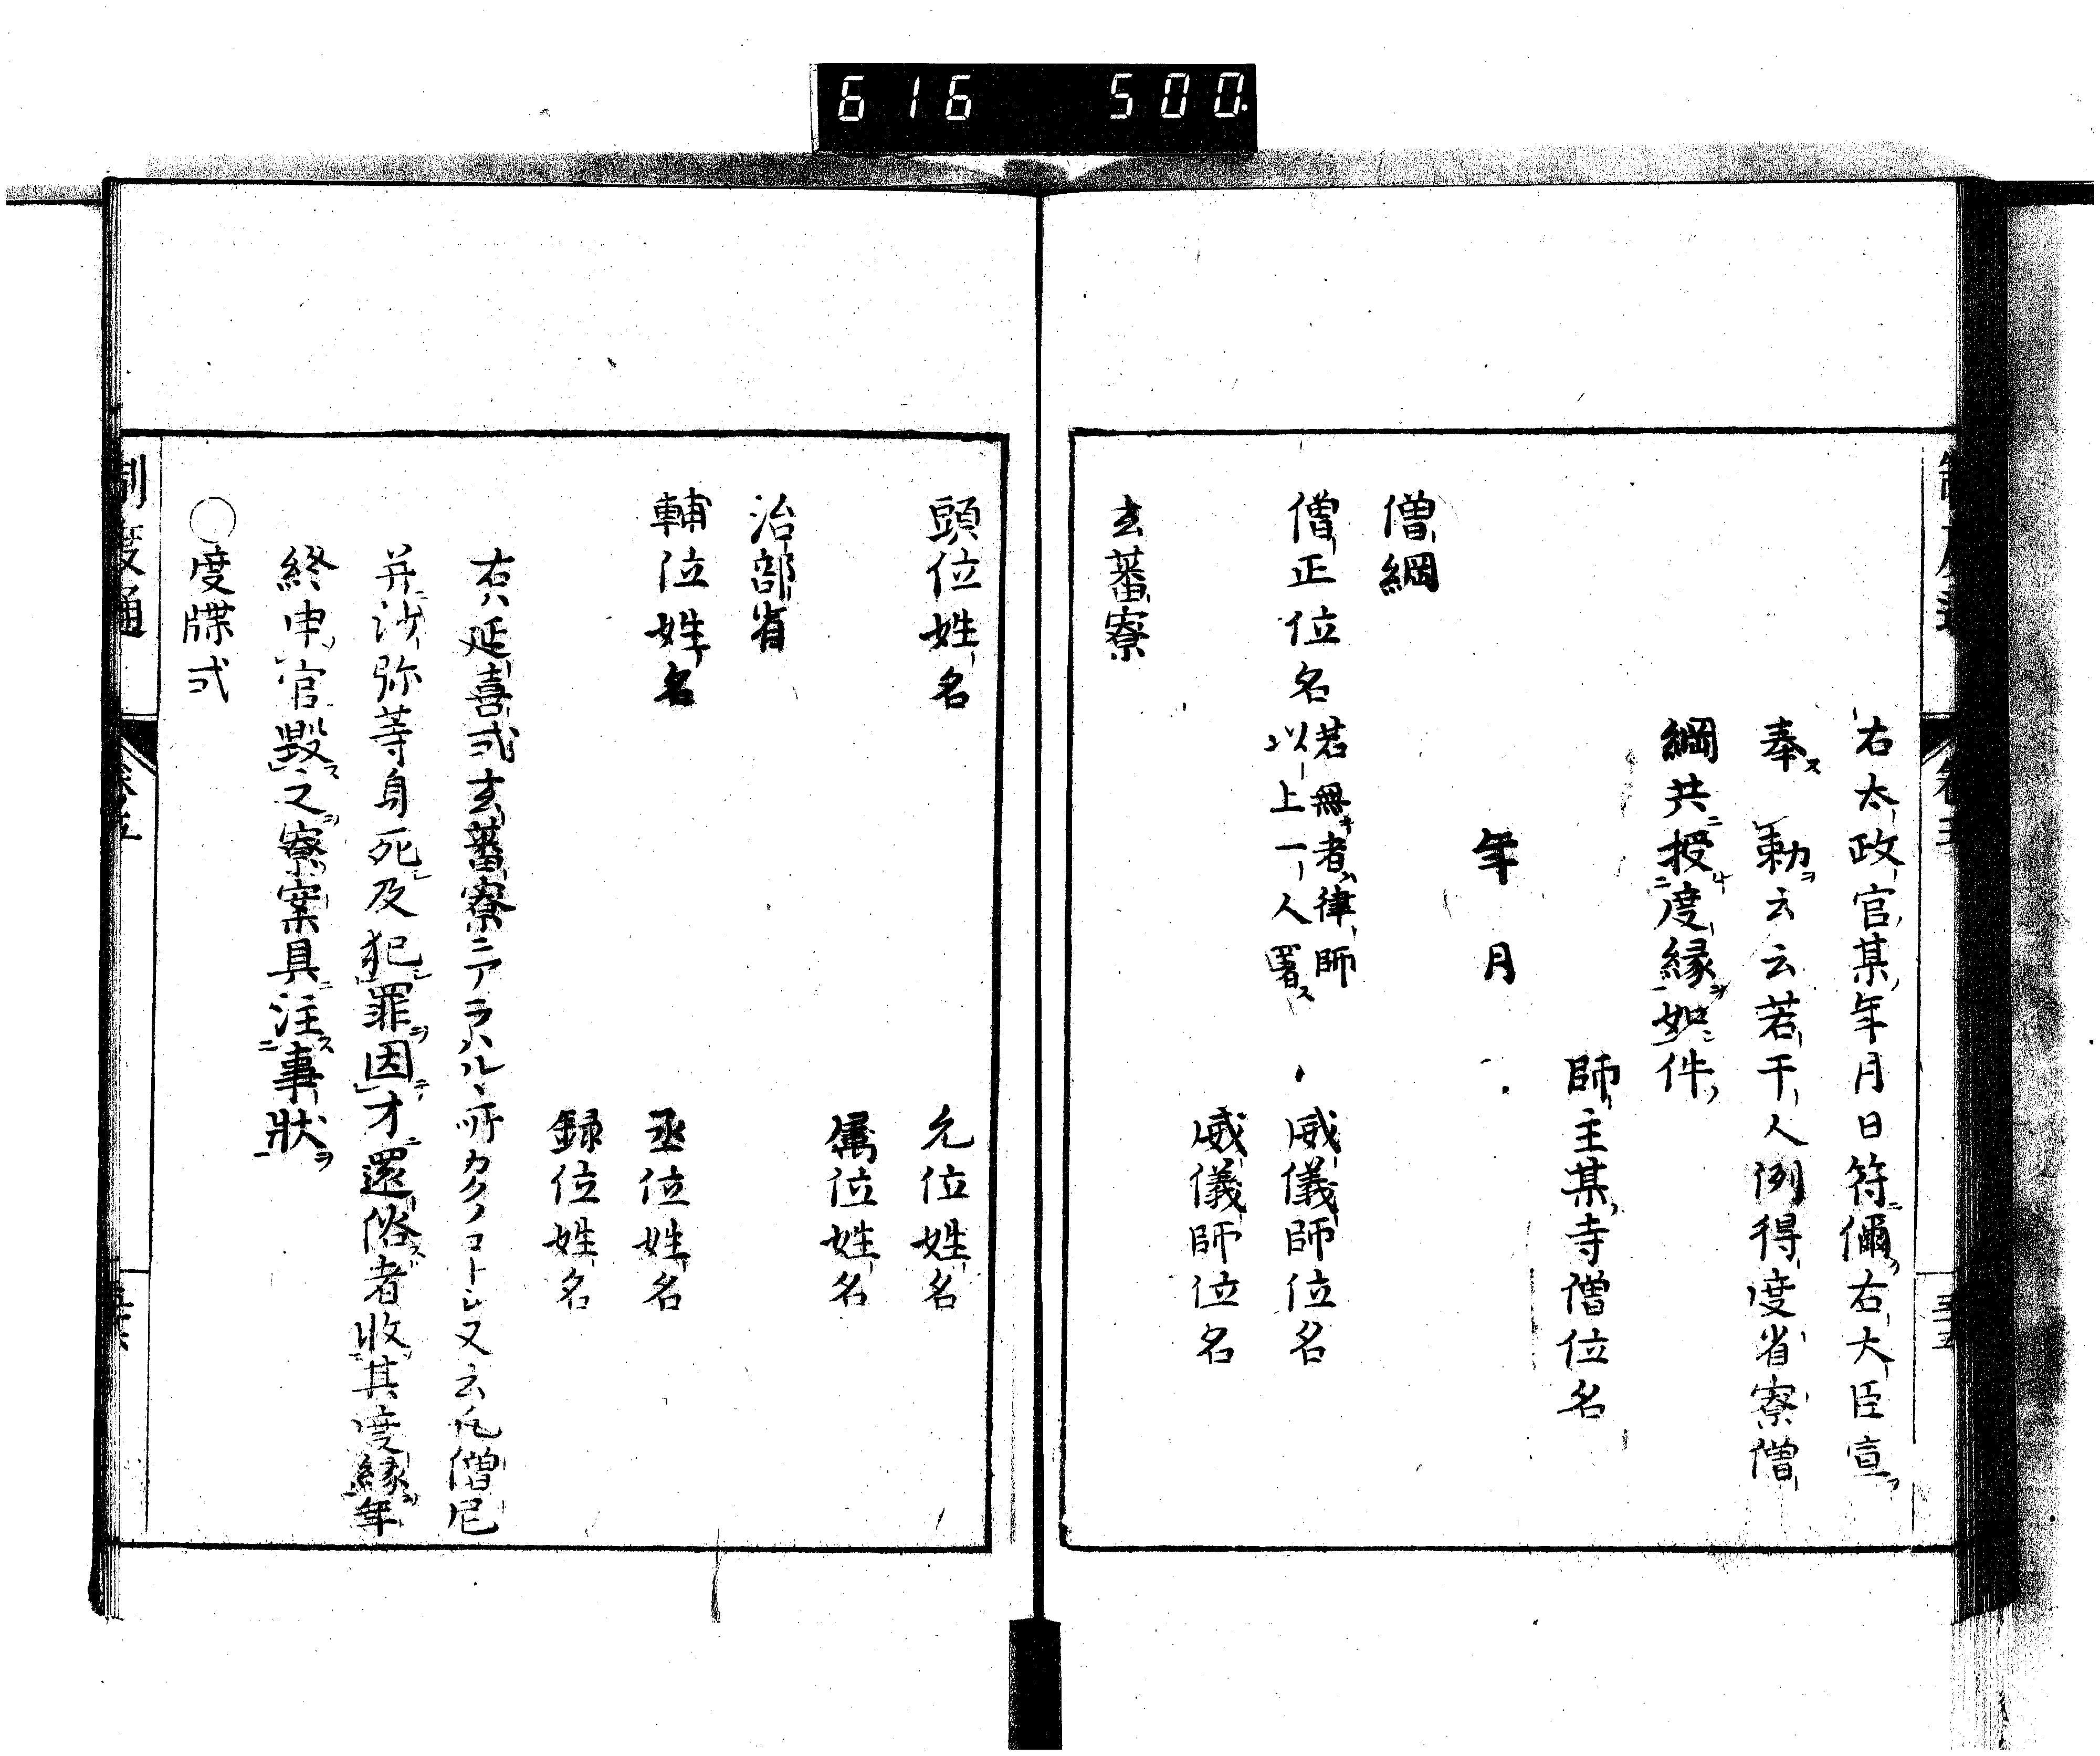 616 500
右太政官某年月日符偁右大臣宣
奉勅云云若干人例得度省寮僧
綱共授度縁如件
師主某寺僧位名
年月
僧綱
僧正位名
若無者律師
以上一人署
威儀師位名
威儀師位名
玄蕃寮
頭位姓名
允位姓名
属位姓名
治部省
輔位姓名
丞位姓名
録位姓名
右ハ延喜式玄蕃寮ニアラハルヽ所カクノコトシ又云凡僧尼
并沙弥等身死及犯罪因才還俗者収其度縁年
終申官毀之寮案具注事状
○度牒式
制度通